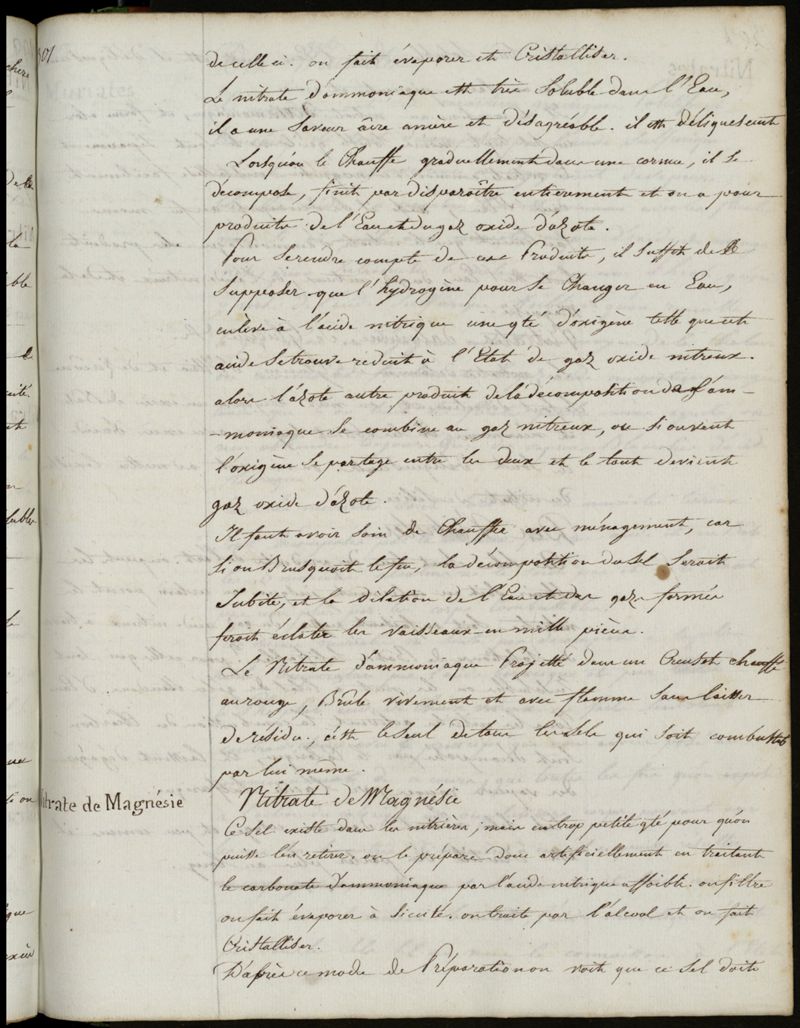 de celle ci. on fait évaporer et Cristalliser.
Le nitrate d'ammoniaque est très soluble dans l'Eau,
il a une saveur âcre amère et désagréable. il est déliquescent
Lorsqu'on le Chauffe graduellement dans une cornue, il se
décompose, finit par disparaître entierement et on a pour
produits de l'Eau et du gaz oxide d'azote.
Pour se rendre compte de ces Produits, il suffit de
supposer que l'hydrogène pour se Changer en Eau,
enleve à l'acide nitrique une qté d'oxigène telle que cet
acide se trouve reduit à l'Etat de gaz oxide nitreux.
alors l'azote autre produit de la décomposition de l'am-
-moniaque se combine au gaz nitreux, ou si on veut
l'oxigène se partage entre les deux et le tout devient
gaz oxide d'azote.
Il faut avoir soin de Chauffer avec ménagement, car
si on Brusquoit le feu, la décomposition du sel serait
subite, et la dilation de l'Eau et des gaz formés
feroit éclater les vaisseaux en mille pièces.
Le Nitrate d'ammoniaque Projetté dans un Creuset chauffé
au rouge, Brûle vivement et avec flamme sans laisser
de résidu, c'est le seul de tous les sels qui soit combustible
par lui meme.
Nitrate de Magnésie
Nitrate de Magnésie
Ce sel existe dans les nitrières, mais en trop petite qté pour qu'on
puisse l'en retirer. on le prépare donc artificiellement en traitant
le carbonate d'ammoniaque par l'acide nitrique affoibli. on filtre
on fait évaporer à siccité. on traite par l'alcool et on fait
Cristalliser.
D'après ce mode de Préparation on voit que ce sel doit